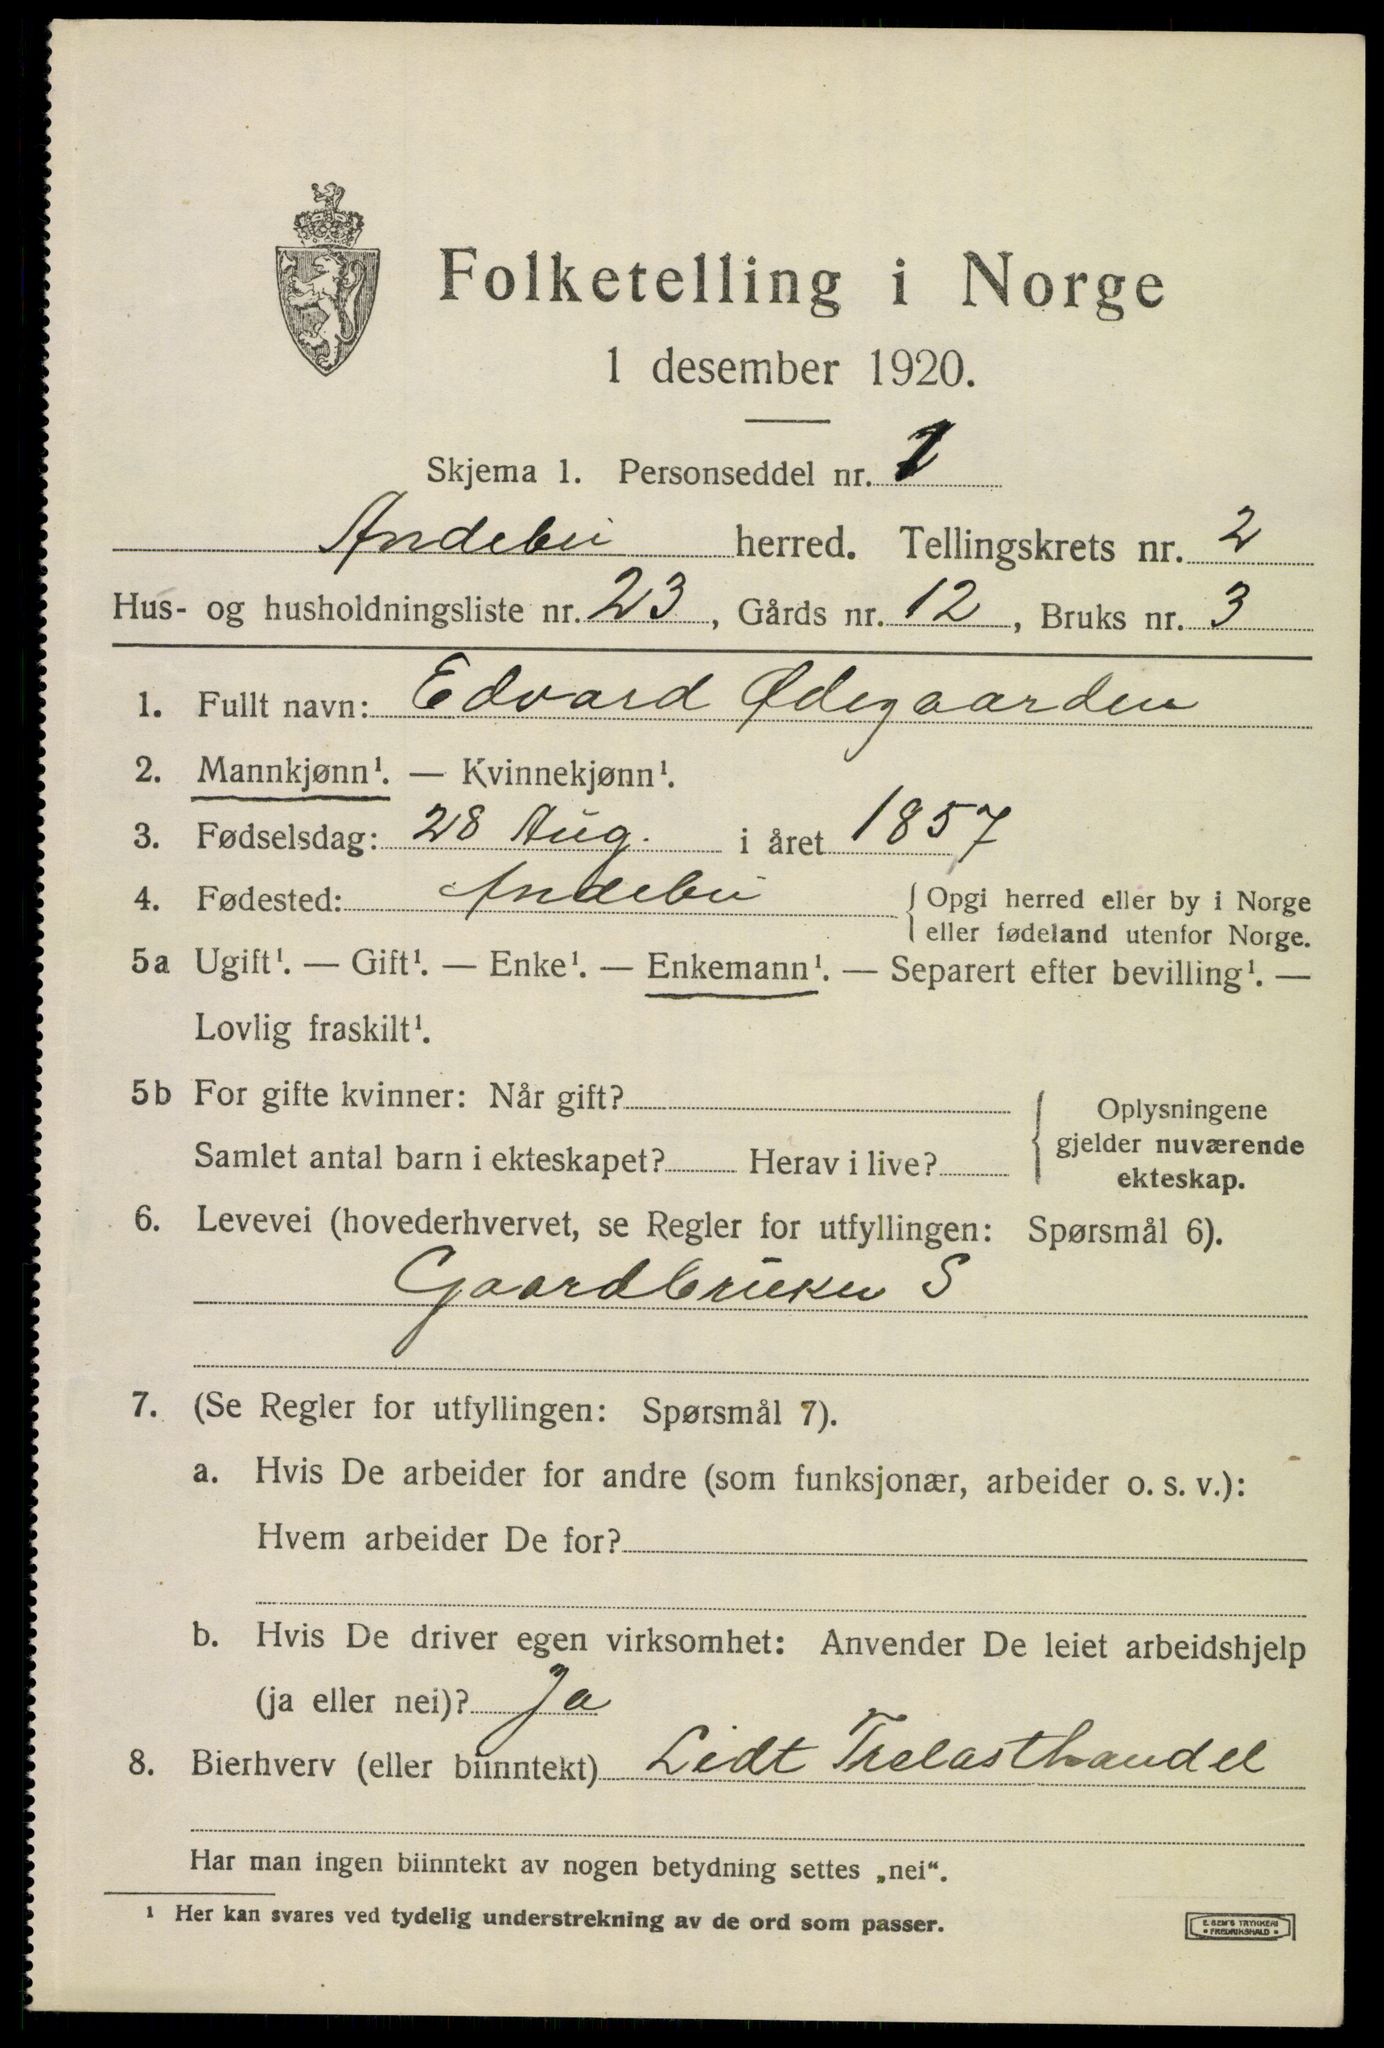 Folketelling i Norge
1 desember 1920.
Skjema 1. Personseddel nr. 1
Andebu herred. Tellingskrets nr. 2
Hus- og husholdningsliste nr. 23, Gårds nr. 12, Bruks nr. 3
1. Fullt navn: Edvard Ødegaarden
2. Mannkjønn¹. — Kvinnekjønn¹.
3. Fødselsdag: 28 Aug. i året 1857
4. Fødested: Andebu { Opgi herred eller by i Norge
eller fødeland utenfor Norge.
5a Ugift¹. — Gift¹. — Enke¹. — Enkemann¹. — Separert efter bevilling¹. —
Lovlig fraskilt¹.
5b For gifte kvinner: Når gift?
Samlet antal barn i ekteskapet? Herav i live?
Oplysningene
gjelder nuværende
ekteskap.
6. Levevei (hovederhvervet, se Regler for utfyllingen: Spørsmål 6).
Gaardbruker S
7. (Se Regler for utfyllingen: Spørsmål 7).
a. Hvis De arbeider for andre (som funksjonær, arbeider o. s. v.):
Hvem arbeider De for?
b. Hvis De driver egen virksomhet: Anvender De leiet arbeidshjelp
(ja eller nei)? Ja
8. Bierhverv (eller biinntekt) Lidt Trelasthandel
Har man ingen biinntekt av nogen betydning settes „nei“.
¹ Her kan svares ved tydelig understrekning av de ord som passer.
E. SEM'S TRYKKERI
• FREDRIKSHALD •